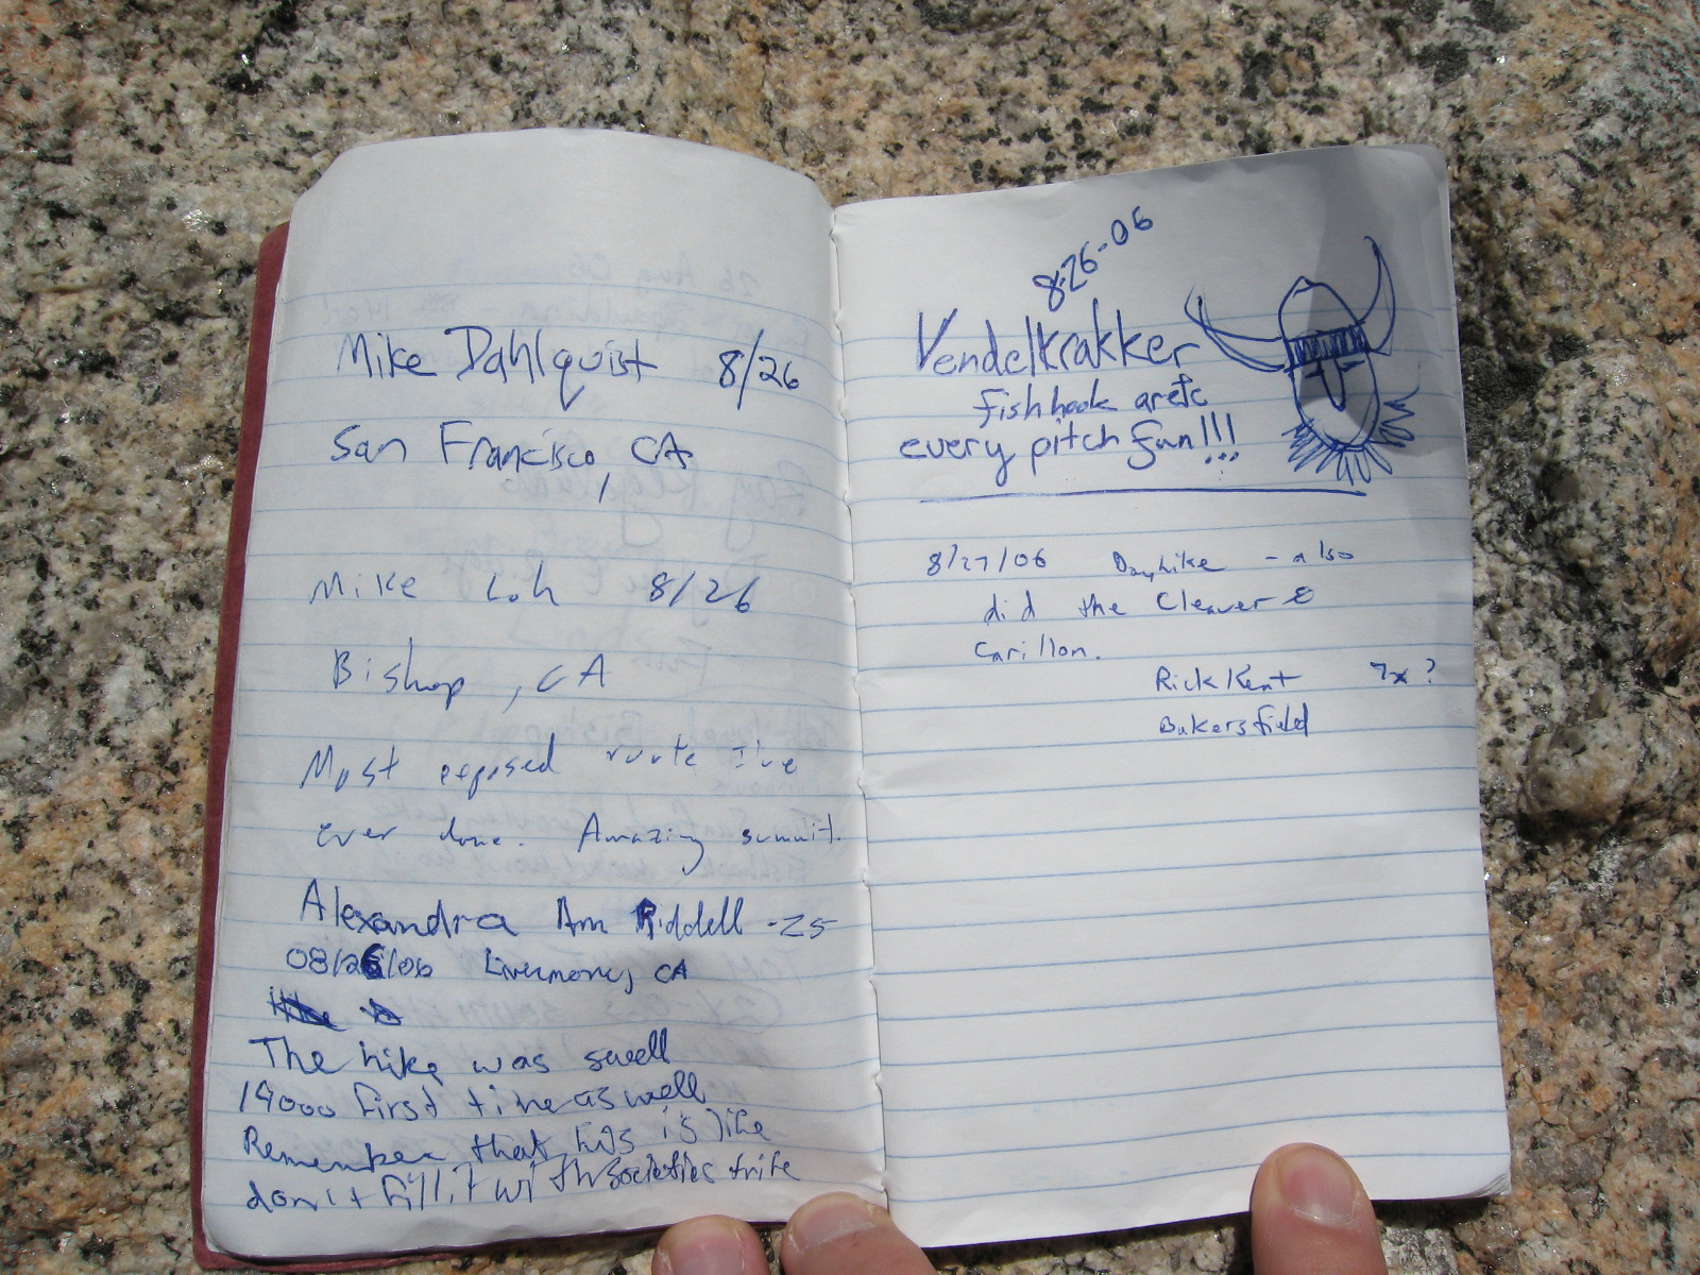 Mike Dahlquist 8/26
San Francisco, CA
Mike Loh 8/26
Bishop, CA
Most exposed route I've
ever done. Amazing summit.
Alexandra Ann Riddell -25
08/26/06 Livermore, CA
The hike was swell
14000 first time as well
Remember that this is life
don't fill it with societies trife
8-26-06
Vendelkrakker
fishhook arete
every pitch fun!!!
8/27/06 Dayhike - also
did the Cleaver &
Carillon.
Rick Kent 7x?
Bakersfield